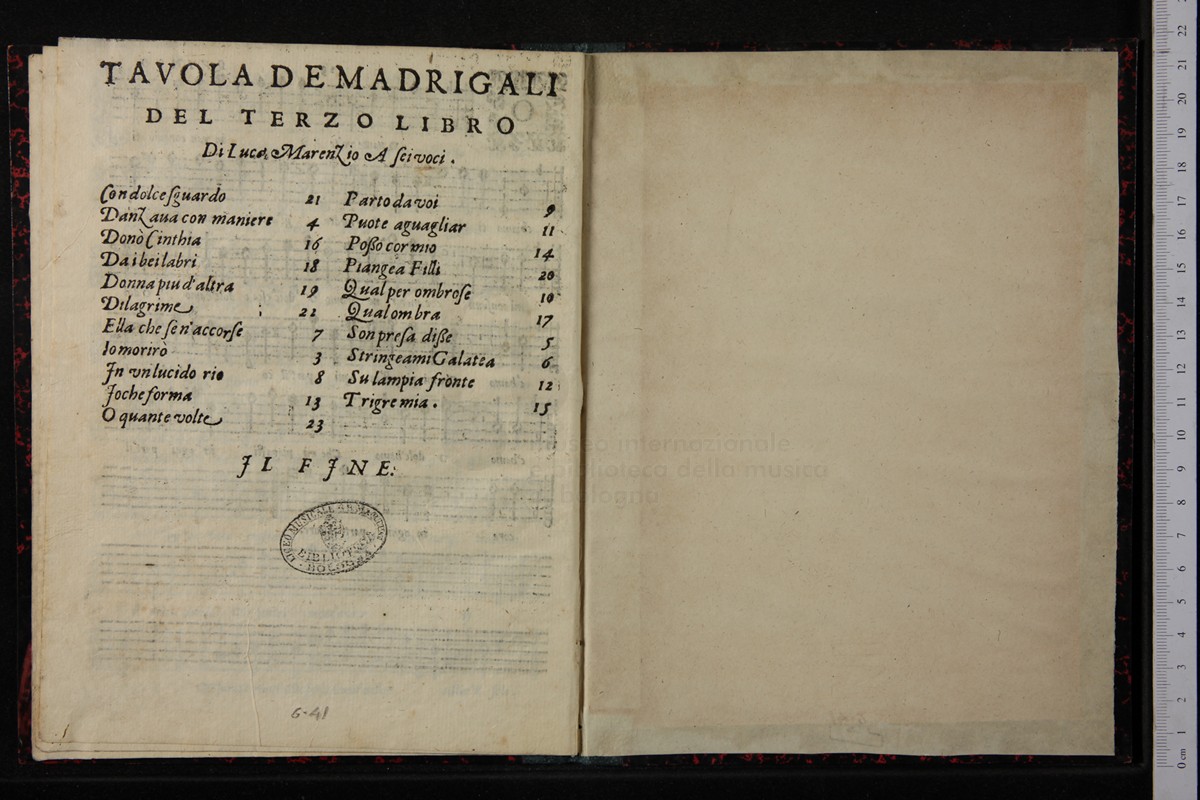 TAVOLA DE MADRIGALI
DEL TERZO LIBRO
Di Luca Marenzio A sei voci.
Con dolce sguardo 21
Danzaua con maniere 4
Donò Cinthia 16
Da i bei labri 18
Donna piu d'altra 19
Di lagrime 21
Ella che se n'accorse 7
Io morirò 3
In vn lucido rio 8
Io che forma 13
O quante volte 23
Parto da voi 9
Puote aguagliar 11
Posso cor mio 14
Piangea Filli 20
Qual per ombrose 10
Qual ombra 17
Son presa disse 5
Stringeami Galatea 6
Su lampia fronte 12
Trigre mia. 15
IL FINE.
LICEO MUSICALE
BIBLIOTECA
BOLOGNA
6-41
museo internazionale
e biblioteca della musica
bologna
0 cm 1 2 3 4 5 6 7 8 9 10 11 12 13 14 15 16 17 18 19 20 21 22